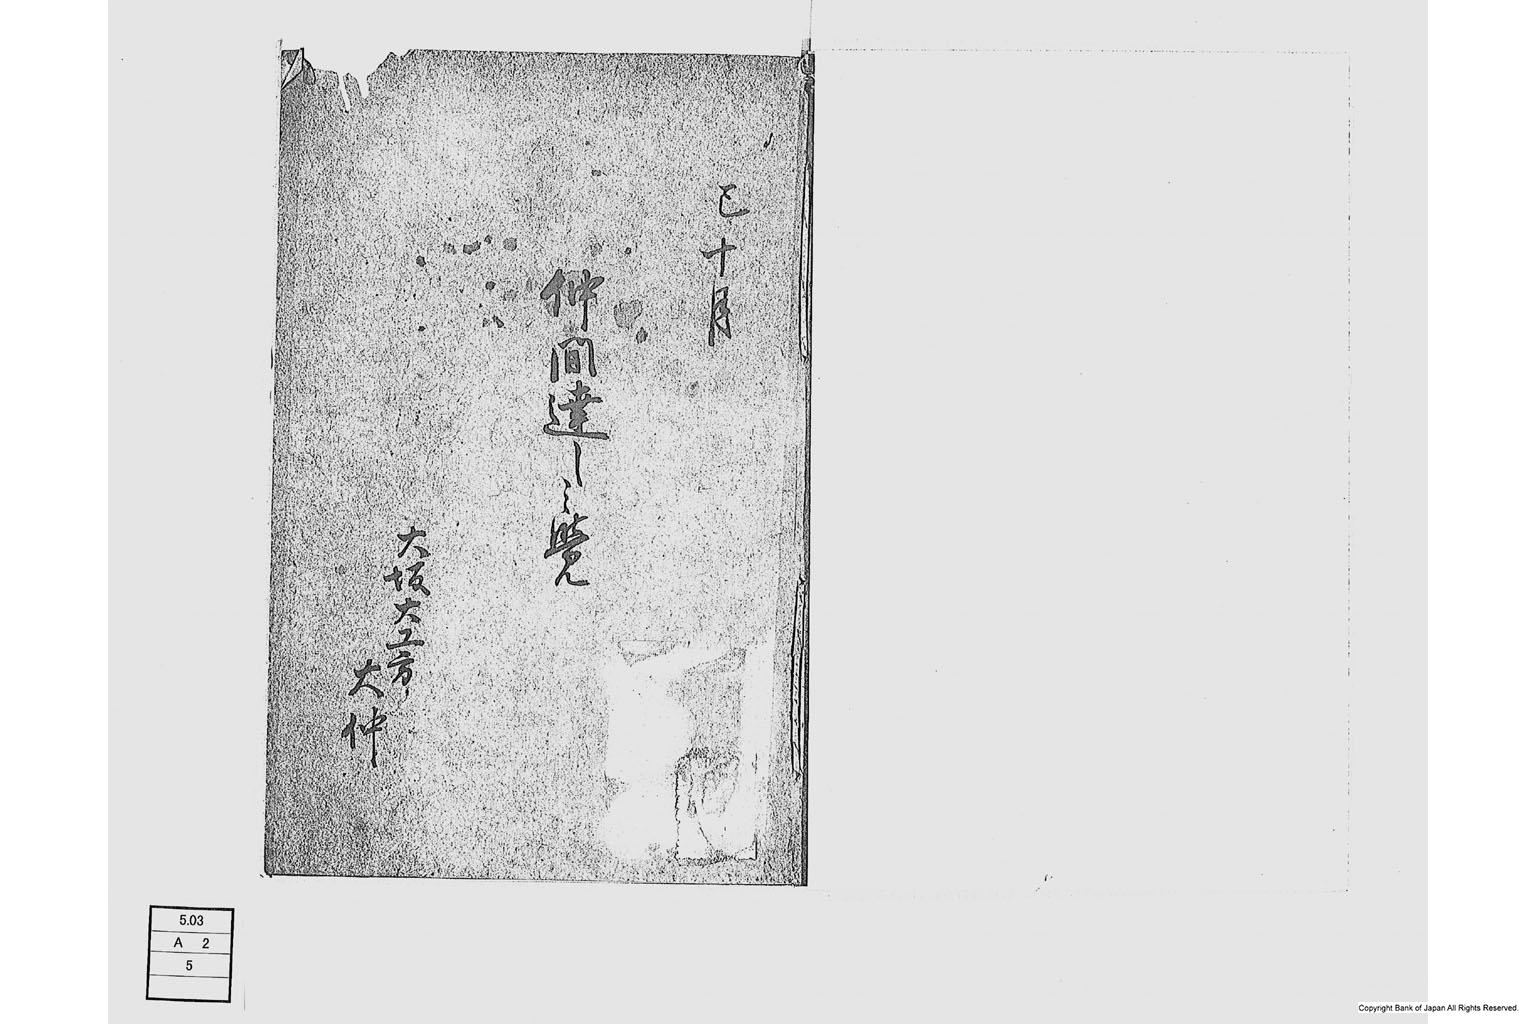 巳十月
仲間達し之覚
大坂大工方
大仲
5.03
A 2
5
Copyright Bank of Japan All Rights Reserved.